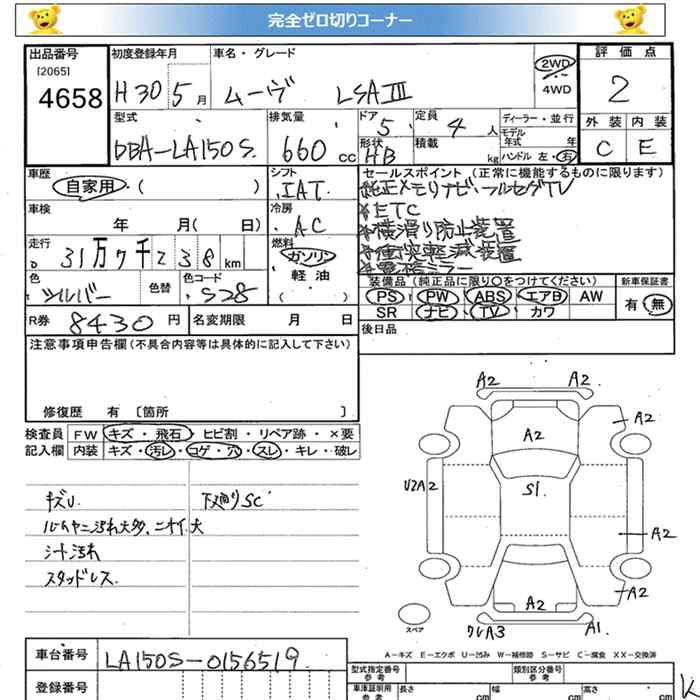 完全ゼロ切りコーナー
出品番号 初度登録年月 車名・グレード 2WD 4WD 評価点
[2065]
4658 H30 5月 ムーヴ LSAⅢ 2
型式 排気量 ドア 定員 ディーラー・並行 外装 内装
DBA-LA150S 660cc 5 4人 モデル年式 年 C E
形状 HB 積載 kg ハンドル 左・右
車歴 シフト セールスポイント(正常に機能するものに限ります)
自家用・( ) IAT 純正メモリナビ・フルセグTV
車検 冷房 *ETC
年 月( 日) AC *横滑り防止装置
走行 燃料 *衝突軽減装置
31万7千238km ガソリン *電格ミラー
軽油
色 色替 色コード 装備品(純正品に限り〇をつけてください) 新車保証書
シルバー S28 ( ) PS PW ABS エアB AW 有・無
SR ナビ TV カワ
R券 8430円 名変期限 月 日 後日品
注意事項申告欄(不具合内容等は具体的に記入して下さい)
修復歴 有 [箇所 ]
検査員 FW キズ・飛石・ヒビ割・リペア跡・×要
記入欄 内装 キズ・汚レ・コゲ・穴・スレ・キレ・破レ
キズU 下廻りSC
ルームヤニ汚れ大多、ニオイ大
シート汚れ
スタッドレス
A2 A2
A2
A2
UZA2 S1
A2
A2
A2
スペア ワレA3 A1
A-キズ E-エクボ U-凹み W-補修跡 S-サビ C-腐食 XX-交換済
車台番号 LA150S-0156519 型式指定番号 参考 類別区分番号 参考
登録番号 車庫証明用 参考 長さ cm 幅 cm 高さ cm